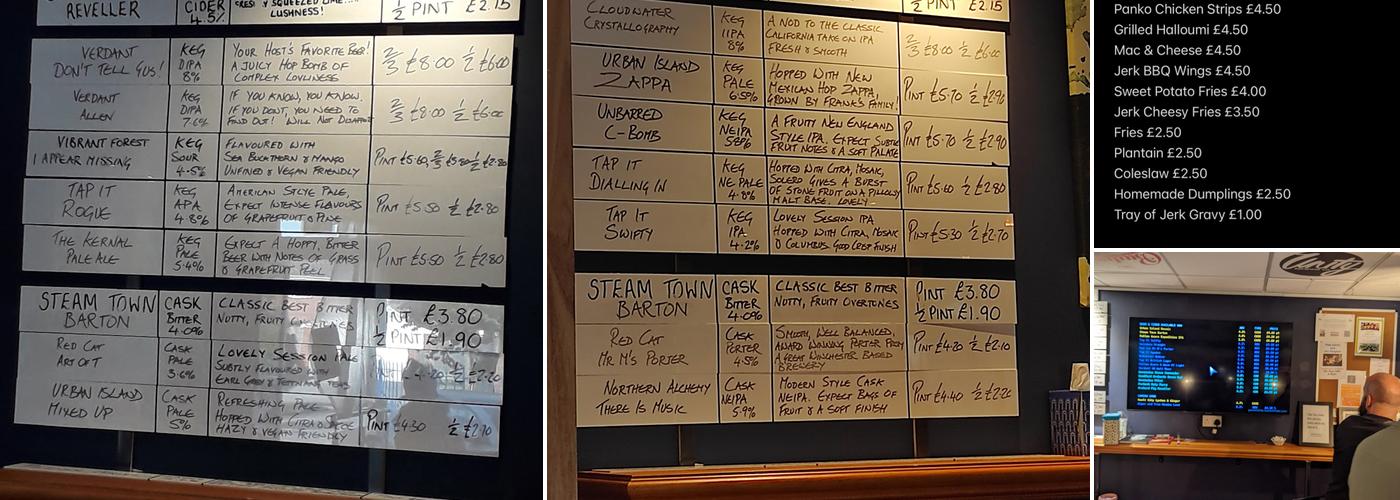 REVELLER
CIDER
4.5%
SQUEEZED LIME...
LUSHNESS!
½ PINT £2.15
VERDANT
DON'T TELL GUS!
KEG
DIPA
8%
YOUR HOST'S FAVORITE BEER!
A JUICY HOP BOMB OF
COMPLEX LOVLINESS
⅔ £8.00 ½ £6.00
VERDANT
ALLEN
KEG
DIPA
IF YOU KNOW, YOU KNOW,
IF YOU DON'T, YOU NEED TO
FIND OUT! WILL NOT DISAPPOINT
⅔ £8.00 ½ £6.00
VIBRANT FOREST
I APPEAR MISSING
KEG
SOUR
4.5%
FLAVOURED WITH
SEA BUCKTHORN & MANGO
UNFINED & VEGAN FRIENDLY
PINT £5.60, ⅔ £3.80 ½ £2.80
TAP IT
ROGUE
KEG
APA
4.8%
AMERICAN STLYE PALE,
EXPECT INTENSE FLAVOURS
OF GRAPEFRUIT & PINE
PINT £5.50 ½ £2.80
THE KERNAL
PALE ALE
KEG
PALE
5.4%
EXPECT A HOPPY, BITTER
BEER WITH NOTES OF GRASS
& GRAPEFRUIT PEEL
PINT £5.50 ½ £2.80
STEAM TOWN
BARTON
CASK
BITTER
4.0%
CLASSIC BEST BITTER
NUTTY, FRUITY OVERTONES
PINT £3.80
½ PINT £1.90
RED CAT
ART OF T
CASK
PALE
3.6%
LOVELY SESSION PALE
SUBTLY FLAVOURED WITH
EARL GREY & TETTNANG TEAS
½ £2.20
URBAN ISLAND
MIXED UP
CASK
PALE
5%
REFRESHING PALE
HOPPED WITH CITRA &
HAZY & VEGAN FRIENDLY
PINT £4.30 ½ £2.10
½ PINT £2.15
CLOUDWATER
CRYSTALLOGRAPHY
KEG
IIPA
8%
A NOD TO THE CLASSIC
CALIFORNIA TAKE ON IPA
FRESH & SMOOTH
⅔ £8.00 ½ £6.00
URBAN ISLAND
ZAPPA
KEG
PALE
6.5%
HOPPED WITH NEW
MEXICAN HOP ZAPPA,
GROWN BY FRANK'S FAMILY!
PINT £5.70 ½ £2.90
UNBARRED
C-BOMB
KEG
NEIPA
5.8%
A FRUITY NEW ENGLAND
STYLE IPA. EXPECT SUBTLE
FRUIT NOTES & A SOFT PALATE
PINT £5.70 ½ £2.90
TAP IT
DIALLING IN
KEG
NE PALE
4.8%
HOPPED WITH CITRA, MOSAIC,
SOLERO GIVES A BURST
OF STONE FRUIT ON A PILLOWY
MALT BASE. LOVELY
PINT £5.60 ½ £2.80
TAP IT
SWIFTY
KEG
IPA
4.2%
LOVELY SESSION IPA
HOPPED WITH CITRA, MOSAIC
& COLUMBUS. GOOD CRISP FINISH
PINT £5.30 ½ £2.70
STEAM TOWN
BARTON
CASK
BITTER
4.0%
CLASSIC BEST BITTER
NUTTY, FRUITY OVERTONES
PINT £3.80
½ PINT £1.90
RED CAT
MR M'S PORTER
CASK
PORTER
4.5%
SMOOTH, WELL BALANCED,
AWARD WINNING PORTER FROM
A GREAT WINCHESTER BASED
BREWERY
PINT £4.20 ½ £2.10
NORTHERN ALCHEMY
THERE IS MUSIC
CASK
NEIPA
5.9%
MODERN STYLE CASK
NEIPA. EXPECT BAGS OF
FRUIT & A SOFT FINISH
PINT £4.40 ½ £2.20
Panko Chicken Strips £4.50
Grilled Halloumi £4.50
Mac & Cheese £4.50
Jerk BBQ Wings £4.50
Sweet Potato Fries £4.00
Jerk Cheesy Fries £3.50
Fries £2.50
Plantain £2.50
Coleslaw £2.50
Homemade Dumplings £2.50
Tray of Jerk Gravy £1.00
Unity